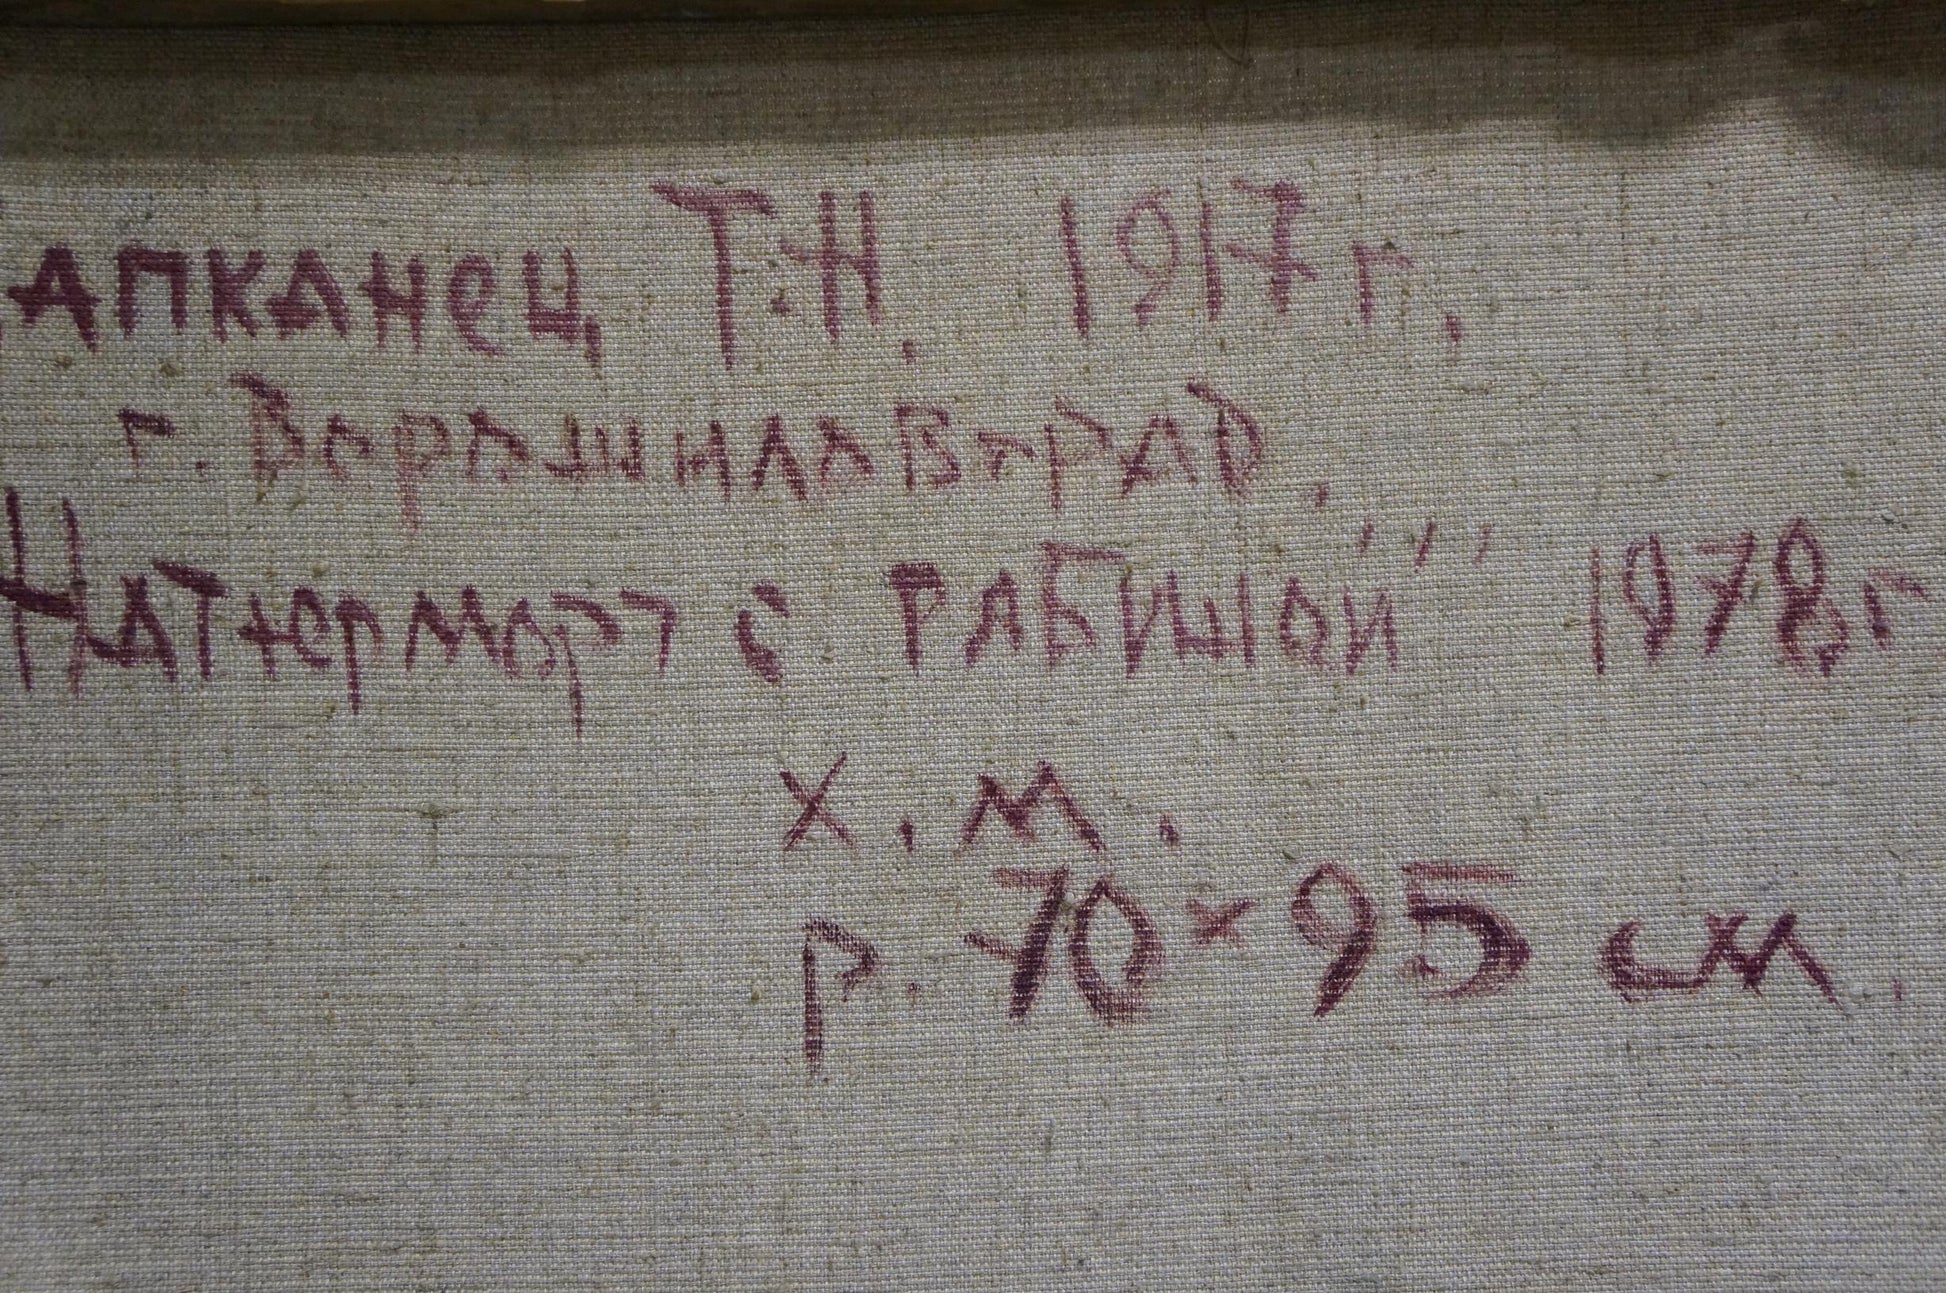 Капканец Т.Н. 1917г.
г. Ворошиловоград.
Натюрморт с рабиной" 1978г
х.м.
р. 70×95 см.